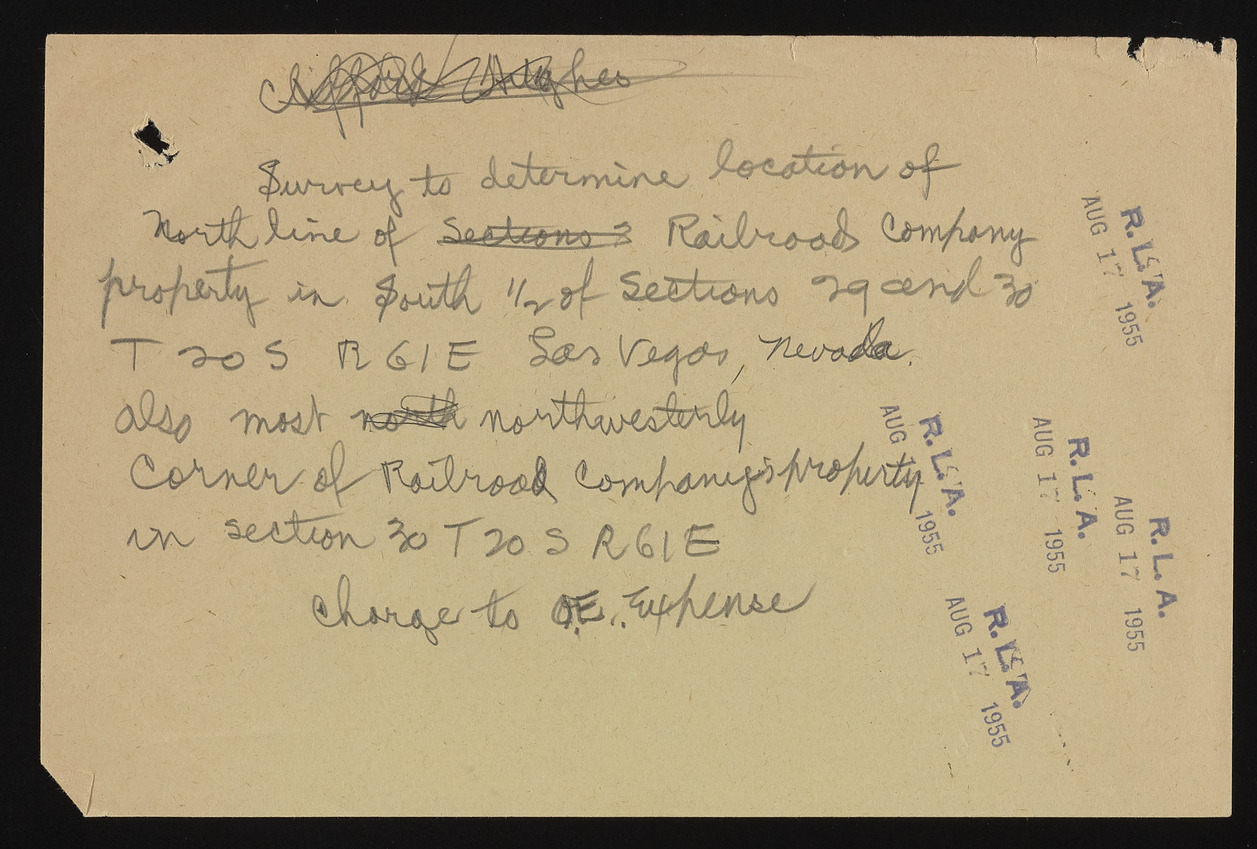 Clifford Hughes
Survey to determine location of
North line of Sections 3 Railroad Company
property in South 1/2 of Sections 29 and 30
T 20 S R 61 E Las Vegas, Nevada.
also most north northwesterly
Corner of Railroad Company's property
in section 30 T 20 S R 61 E
Charge to O.E. Expense
R. L. A.
AUG 17 1955
R. L. A.
AUG 17 1955
R. L. A.
AUG 17 1955
R. L. A.
AUG 17 1955
R. L. A.
AUG 17 1955